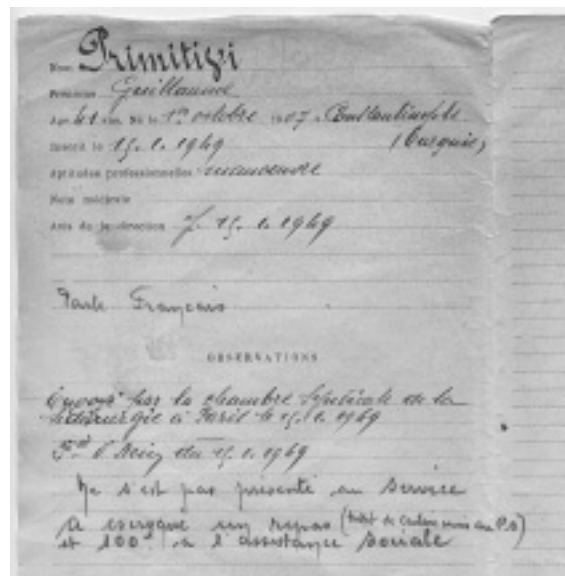 Nom Primitigi
Prénoms Guillaume
Age 41 ans. Né le 1er octobre 1907 à Constantinople
Inscrit le 15.1.1949 (Turquie)
Aptitudes professionnelles manoeuvre
Note médicale
Avis de la direction 15.1.1949
Parle Français
OBSERVATIONS
Envoyé par la chambre Syndicale de la
Sidérurgie à Paris le 15.1.1949
du 15.1.1949
Ne s'est pas présenté au Service
A escroqué un repas
et 100 à l'assistance sociale